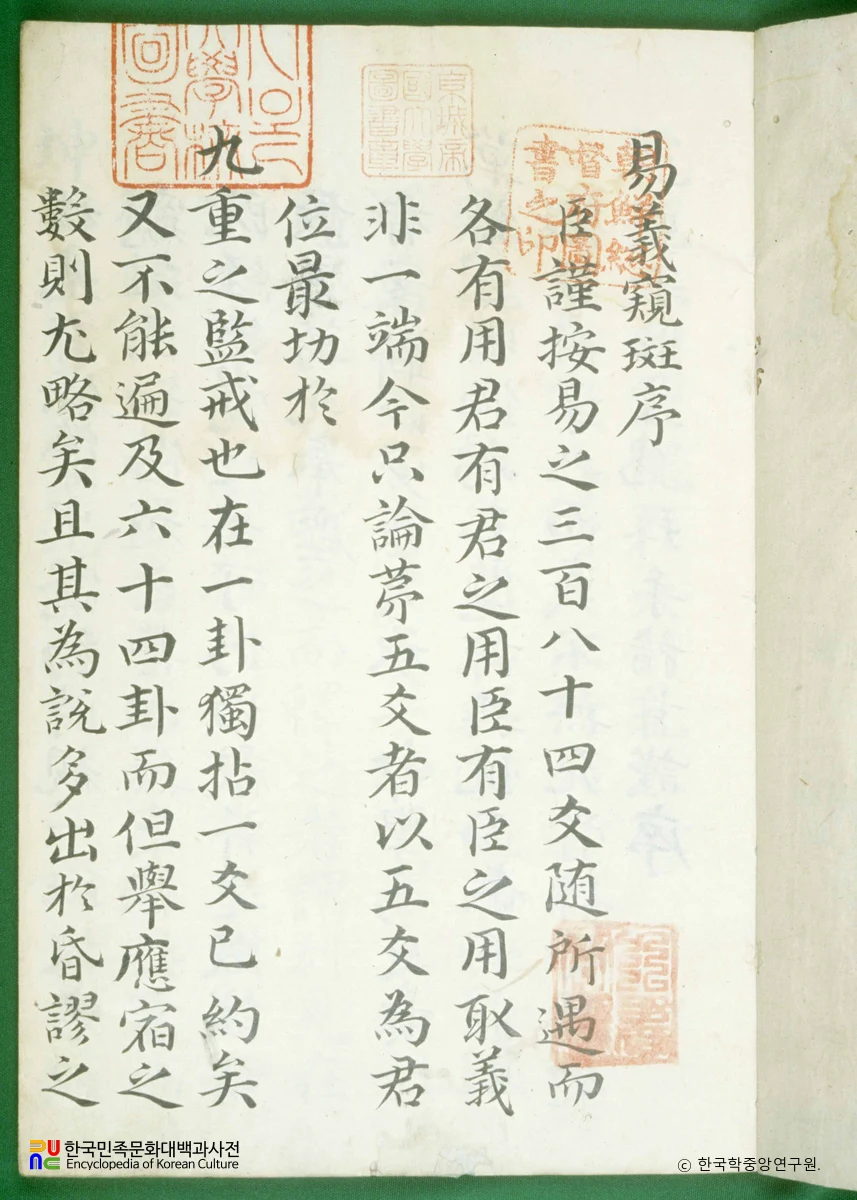 易義窺斑序
臣謹按易之三百八十四爻随所遇而
各有用君有君之用臣有臣之用取義
非一端今只論第五爻者以五爻為君
位最切於
九重之監戒也在一卦獨拈一爻已約矣
又不能遍及六十四卦而但舉應宿之
數則尤略矣且其為說多出於昏謬之
朝鮮總
督府圖
書之印
京城帝
國大學
圖書章
한국민족문화대백과사전
Encyclopedia of Korean Culture
© 한국학중앙연구원.